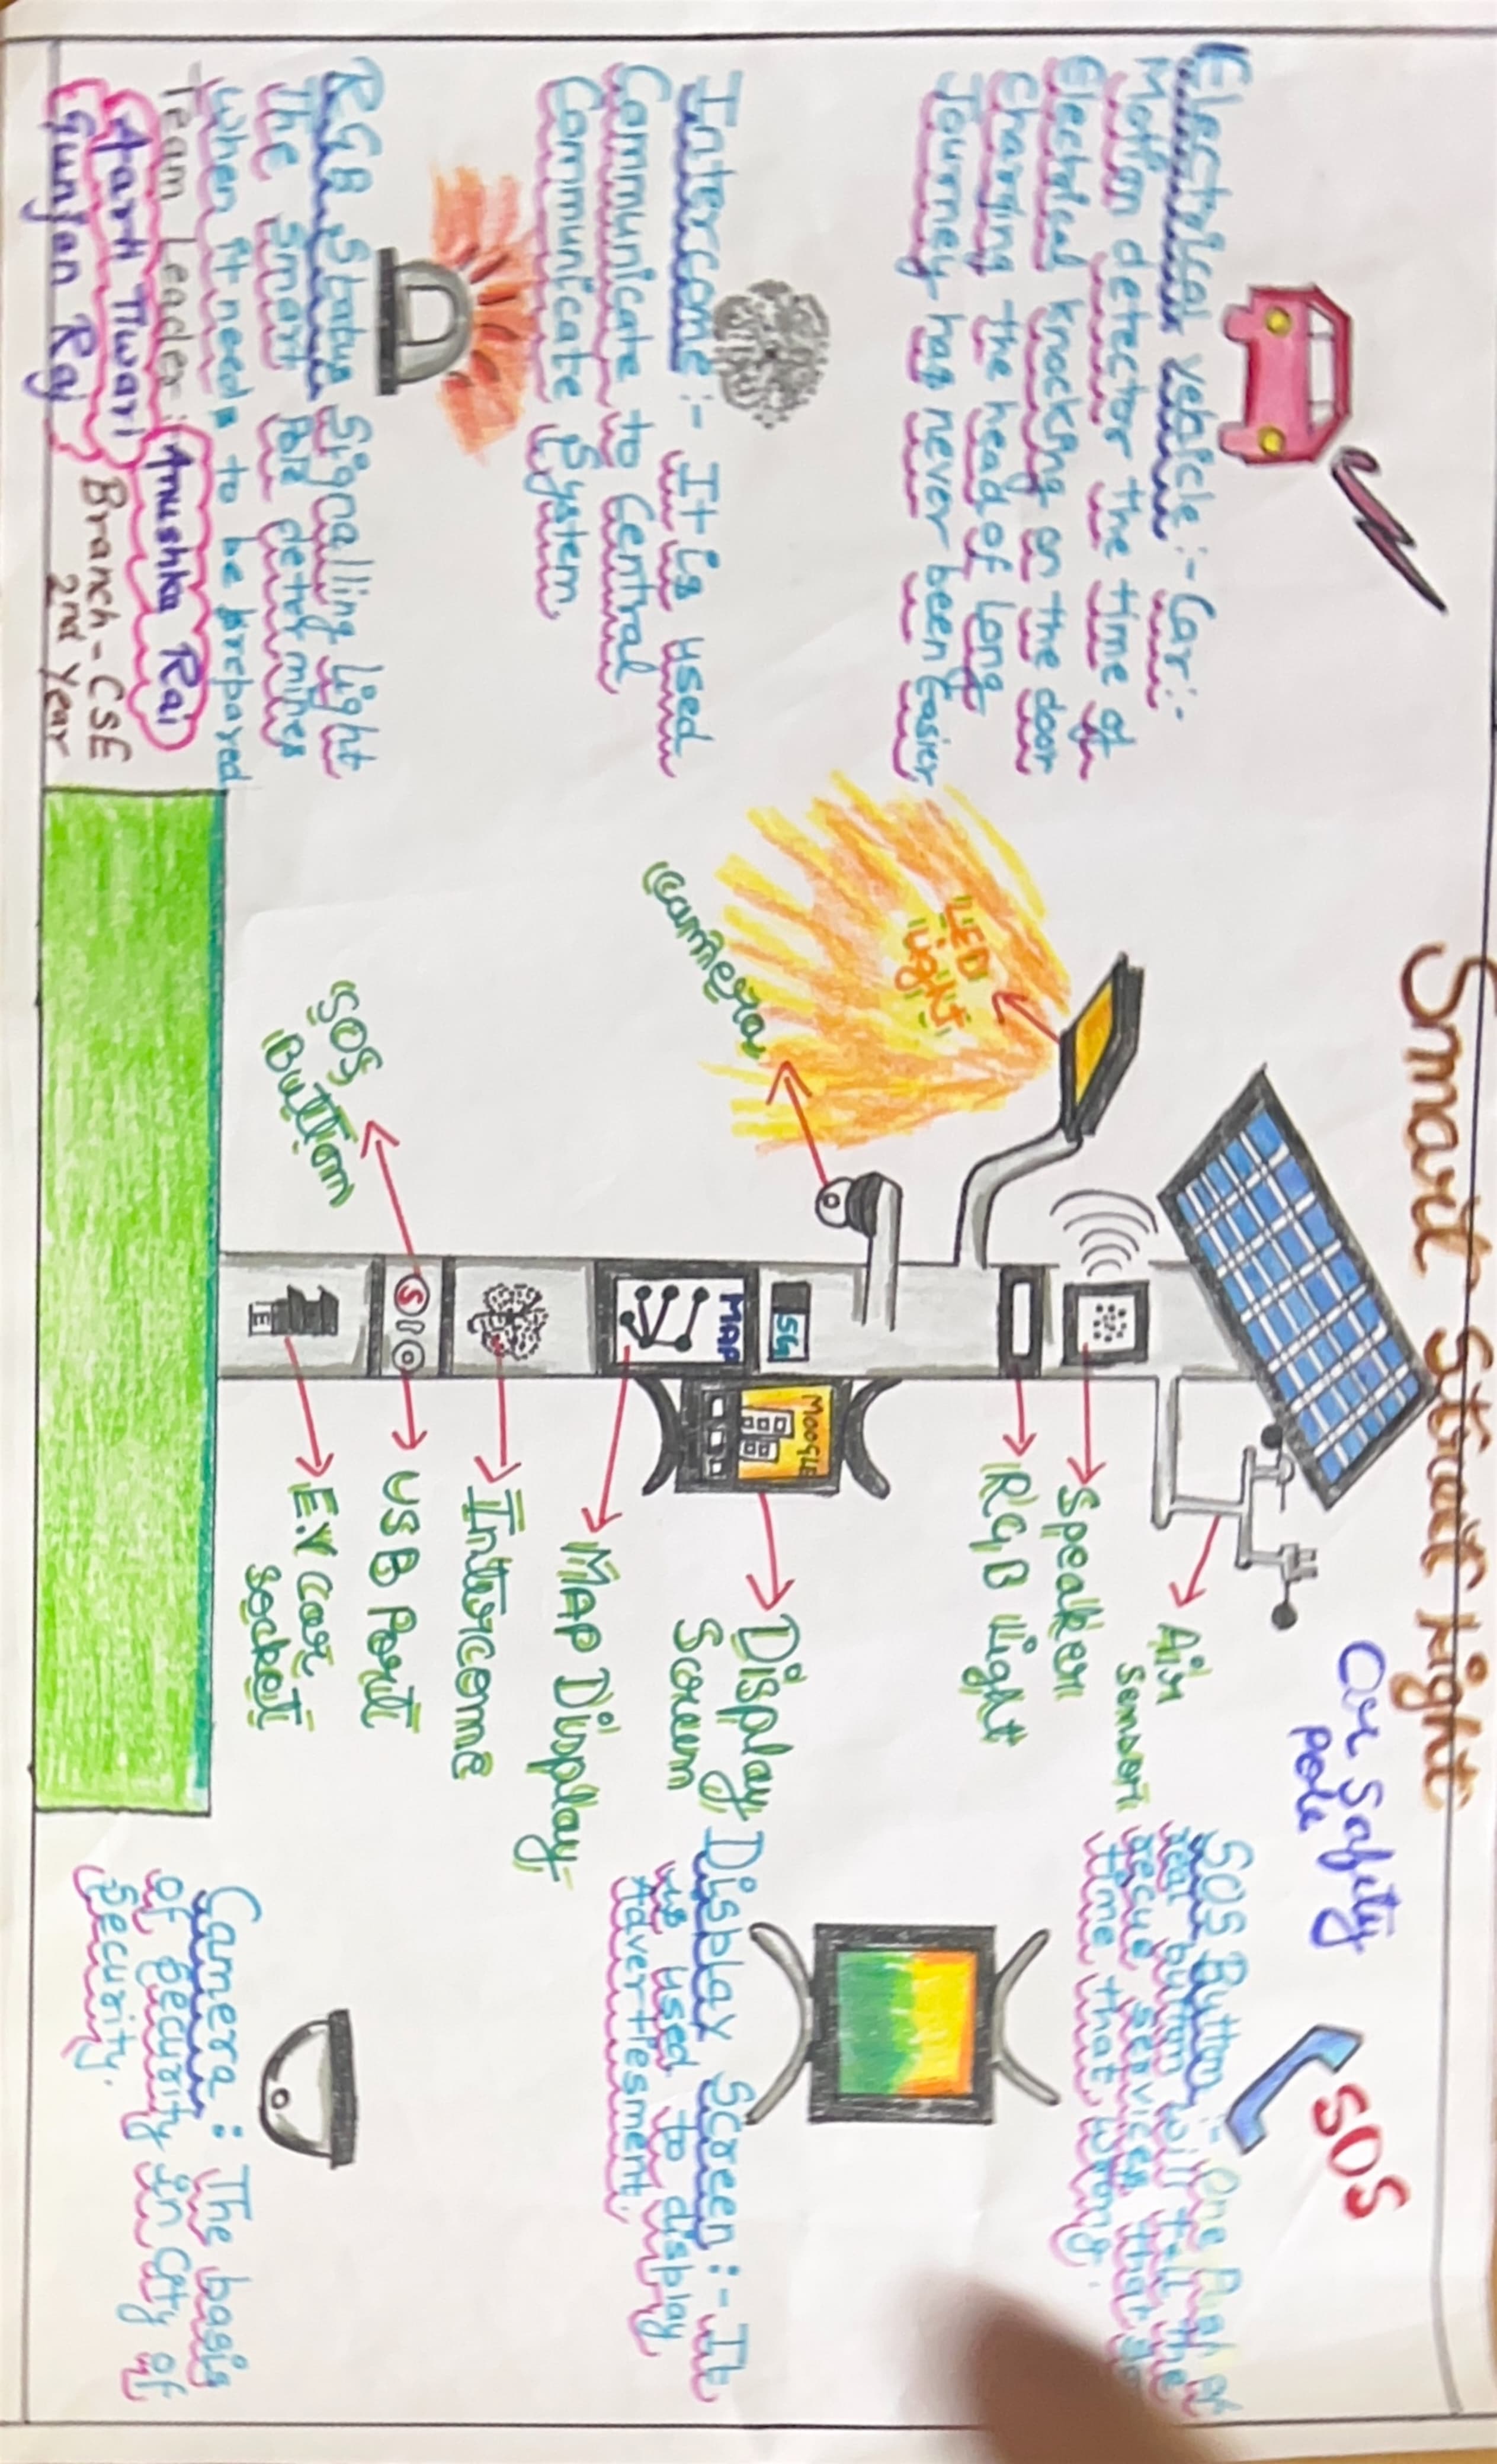 Smart Street Light
Or Safity
pole
SOS
Electrical vehicle :- Car :-
Motion detector the time of
Electrical knocking on the door
Charging the head of long
Journey has never been Easier
Intercome :- It is used
Communicate to Central
Communicate System
RGB Status Signalling light
The Smart Pole determines
when it needs to be prepared
Team Leader : Anushka Rai
Aarti Tiwari
Gunjan Raj
Branch - CSE
2nd Year
LED
Light
Camera
SOS
Button
MAP
5G
MOOGLE
S
E
Air
Sensor
Speaker
RGB Light
Display
Screen
MAP Display
Intercome
USB Port
E.V Car
Socket
SOS Button :- One Push of
real button will tell the
recue services that
time that wrong.
Display Screen :- It
us used to display
Advertiesment.
Camera : The basis
of security in City of
Security.